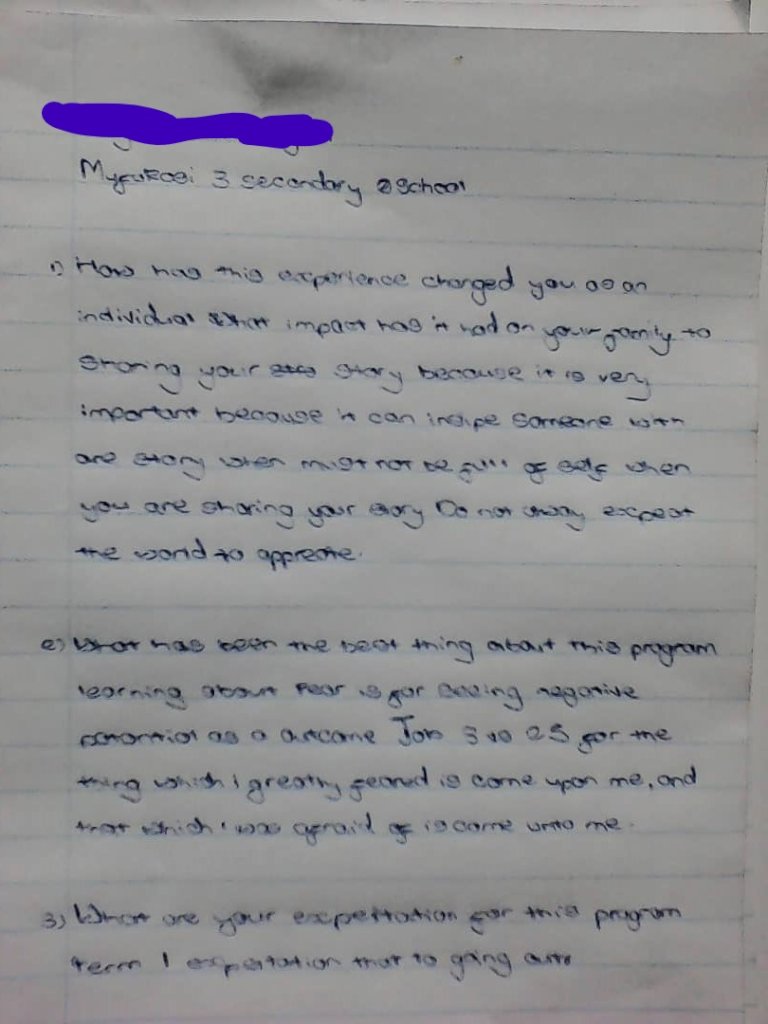 3 secondary School
1) How has this experience changed you as an
individual what impact has it had on your family to
sharing your story because it is very
important because it can inspe someone with
are story when must not be full of self when
you are sharing your story Do not away expect
the world to appreate.
2) What has been the best thing about this program
learning about Fear is for seeing negative
potential as a outcome Job 3 vo 25 for the
thing which I greatly feared is come upon me, and
that which I was afraid of is come unto me.
3) What are your expettation for this program
term 1 expetation that to going